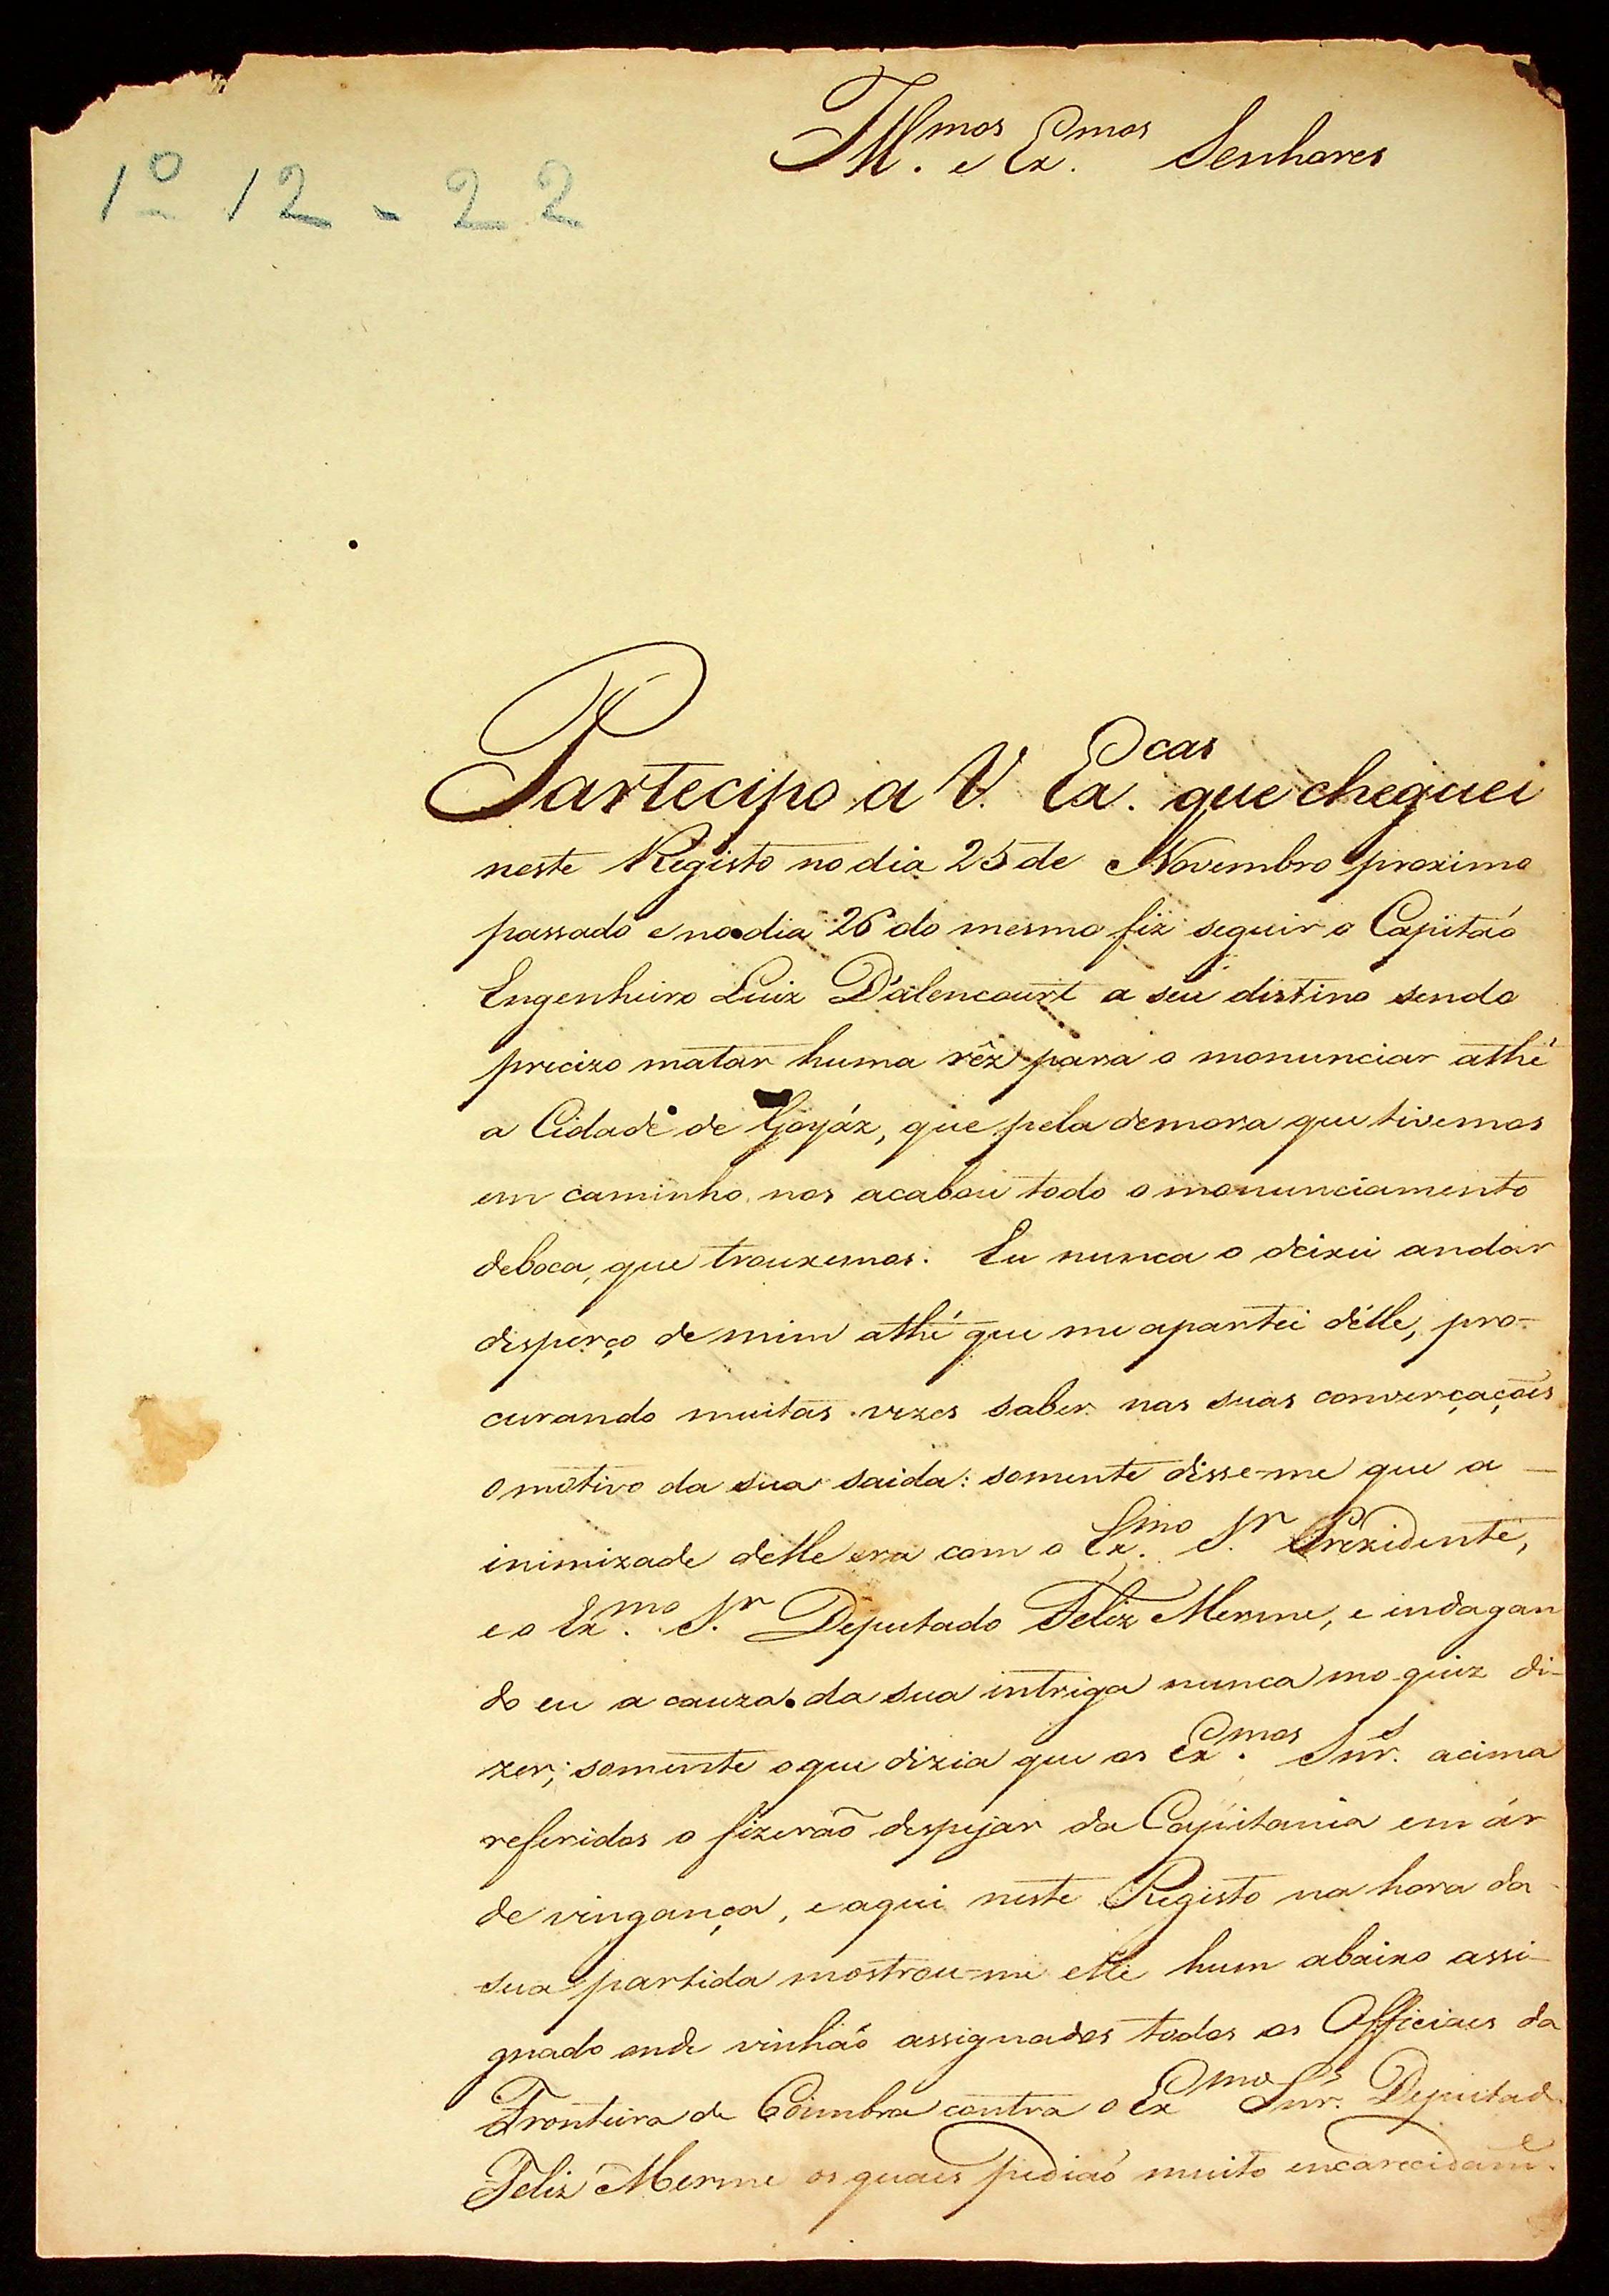 1º 12 - 22
Illmos e Exmos Senhores
Partecipo a V. Excas que cheguei
neste Registo no dia 25 de Novembro proximo
passado e no dia 26 do mesmo fiz seguir o Capitaó
Engenheiro Luiz D'alencourt a seu distino sendo
precizo matar huma rêz para o monunciar athé
a Cidade de Goyáz, que pela demora que tivemos
em caminho nos acabou todo o monunciamento
deboca, que trouxemos. Eu nunca o deixei andar
disperço de mim athé que me apartei délle, pro-
curando muitas vezes saber nas suas converçaçoẽs
o motivo da sua saida: somente disse-me que a
inimizade delle era com o Exmo Sr Prezidente,
e o Exmo Sr Deputado Feliz Merme, e indagan
do eu a cauza da sua intriga nunca mo quiz di-
zer; somente o que dizia que os Exmos Snrs acima
referidos o fizeraõ despejar da Capitania em ár
de vingança, e aqui neste Registo na hora da
sua partida mostrou-me elle hum abaixo assi-
gnado onde vinhaó assignados todos os Officiaes da
Fronteira de Coimbra contra o Exmo Snr. Deputado
Feliz Merme os quaes pediaó muito encarecidamẽ.